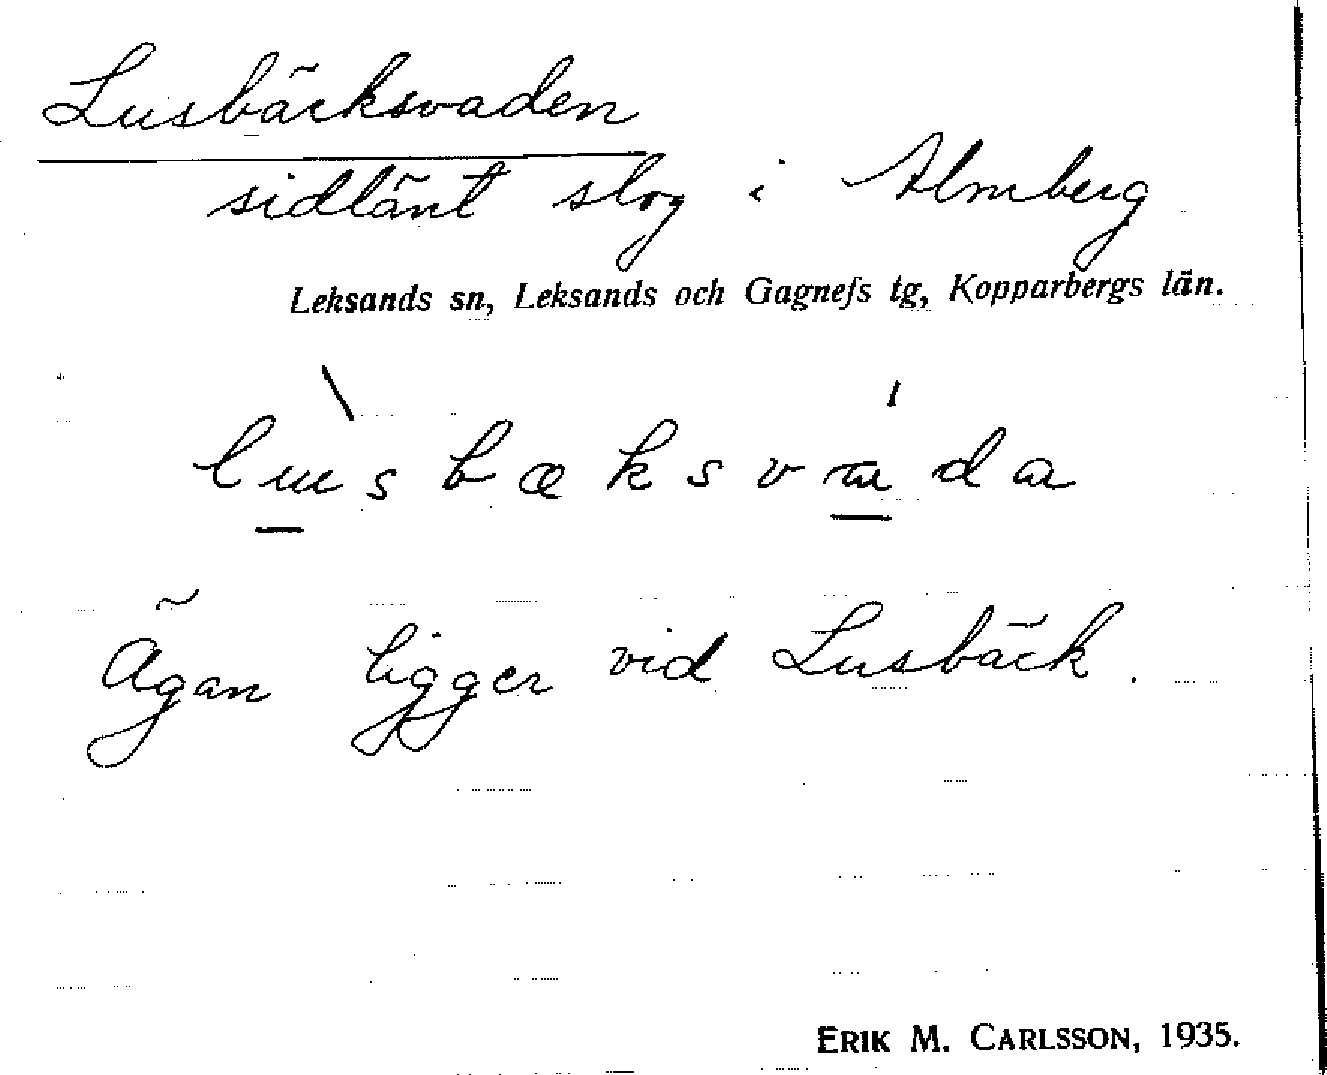 Lusbäcksvaden
sidlänt slog i Almberg
Leksands sn, Leksands och Gagnefs tg, Kopparbergs län.
Ägan ligger vid Lusbäck.
ERIK M. CARLSSON, 1935.